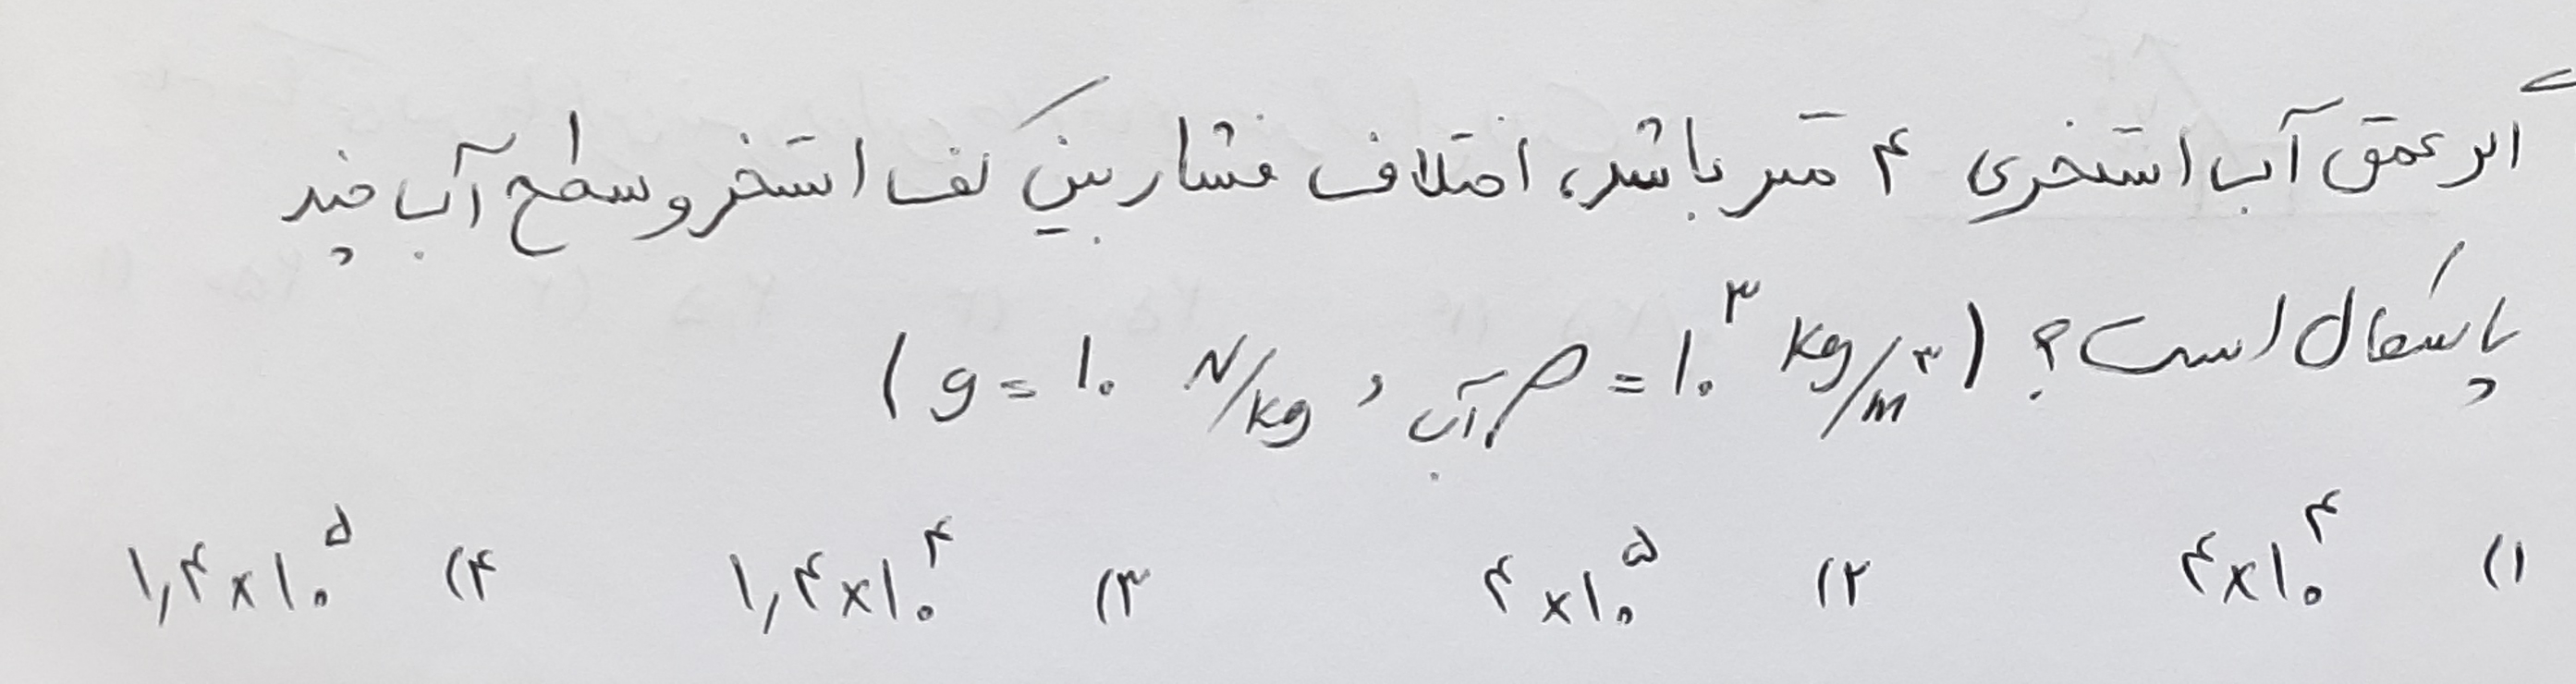 اگر عمق آب استخری ۴ متر باشد، اختلاف فشار بین کف استخر و سطح آب چند
پاسکال است؟ (ρآب = ۱۰^۳ kg/m^۳ , g = ۱۰ N/kg)
۱) ۴×۱۰^۴ ۲) ۴×۱۰^۵ ۳) ۱,۴×۱۰^۴ ۴) ۱,۴×۱۰^۵